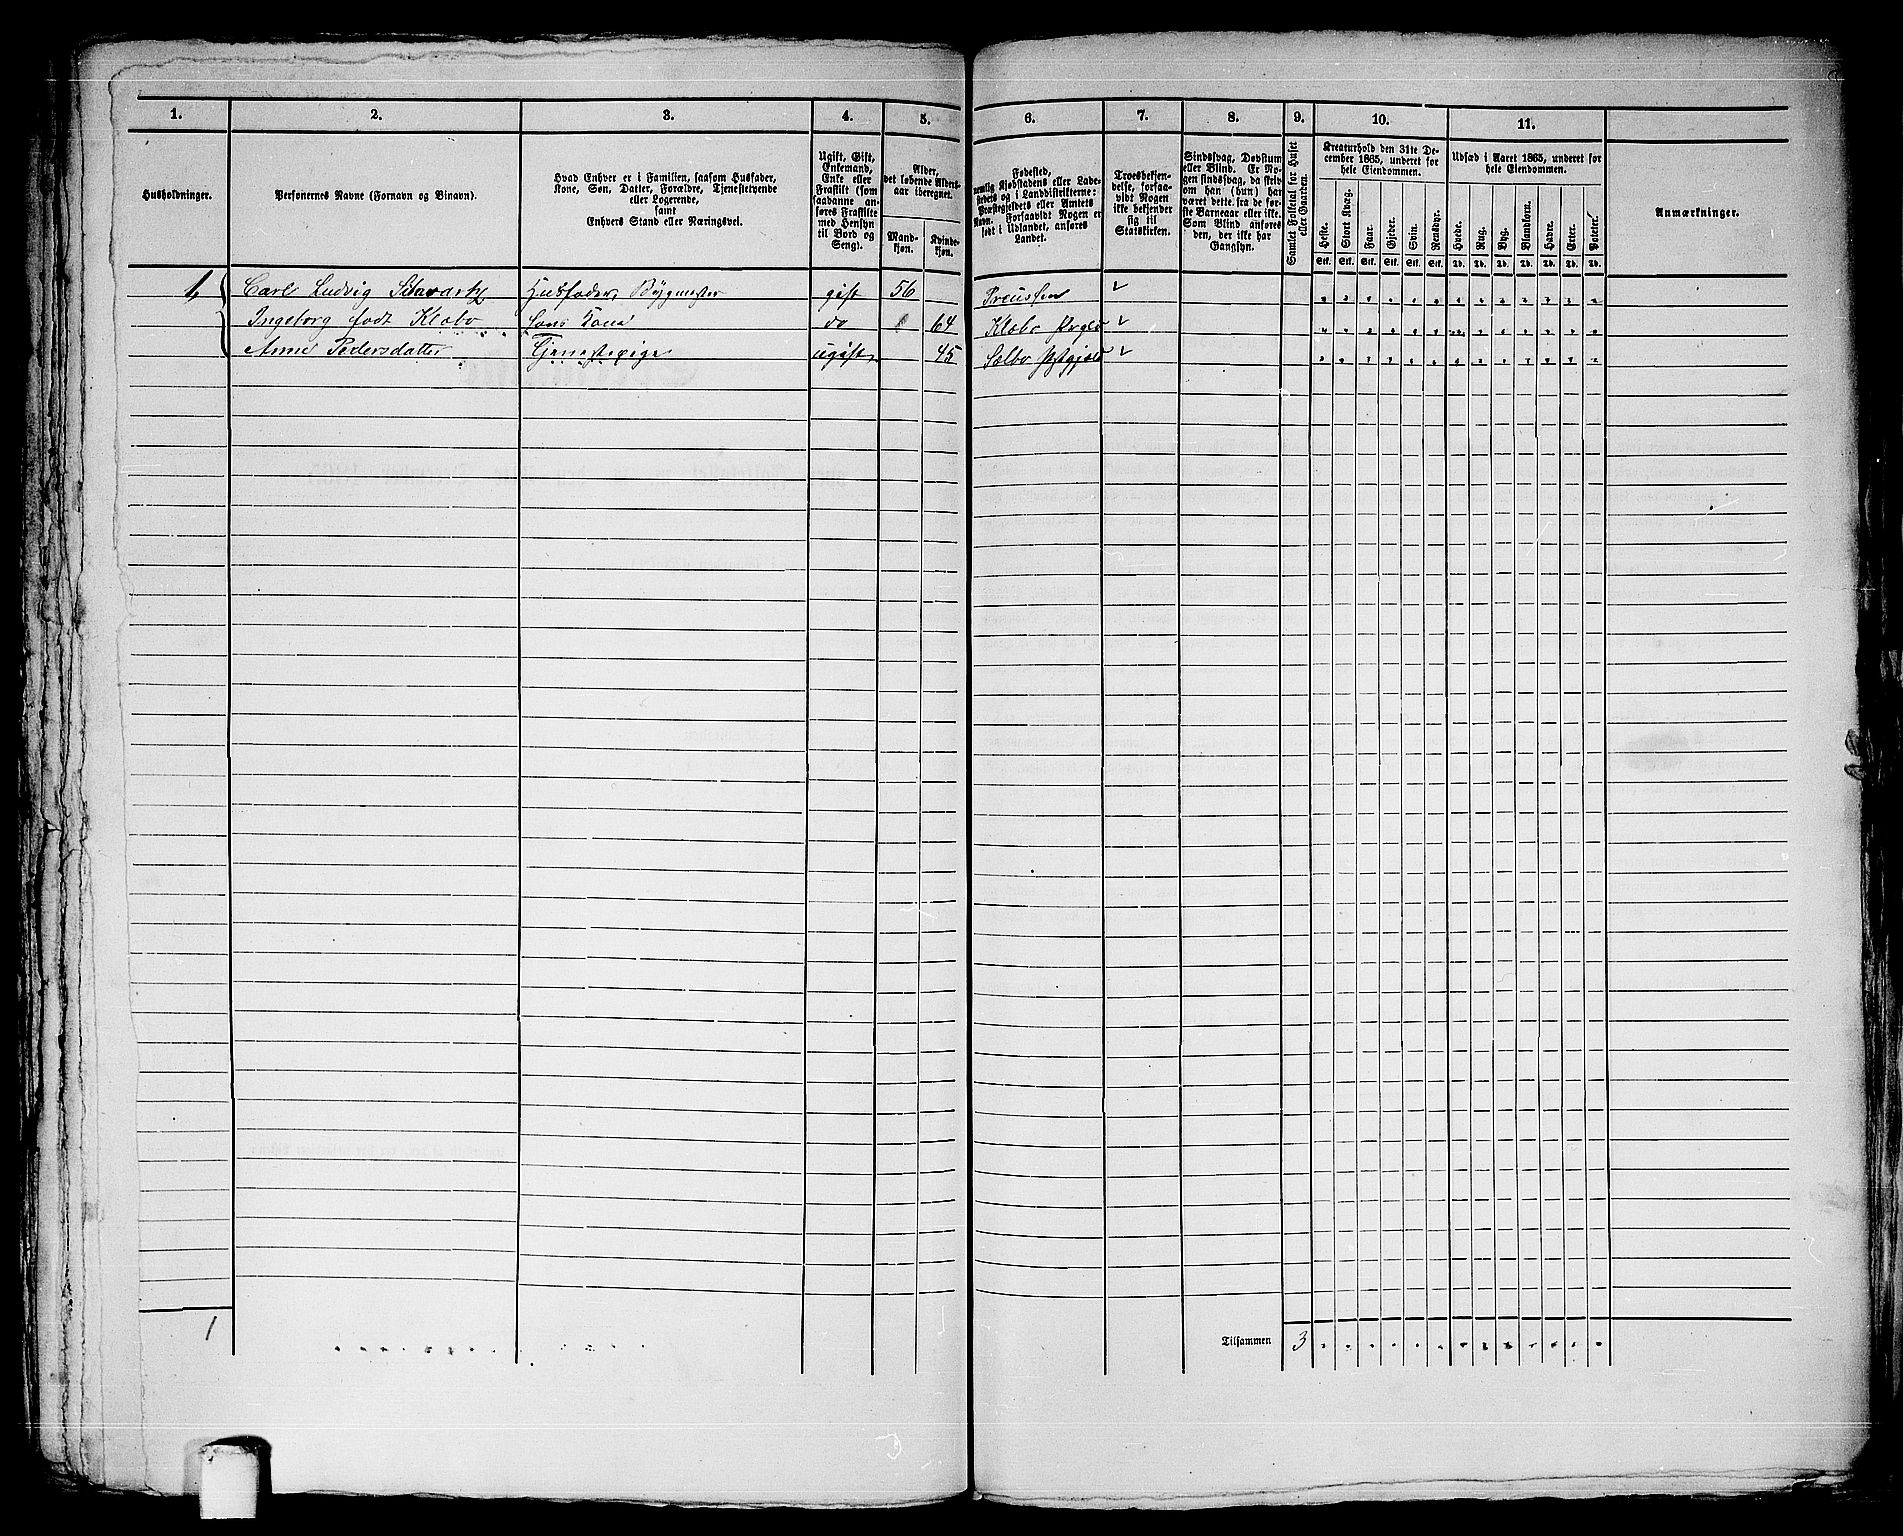 1. 2. 3. 4. 5. 6. 7. 8. 9. 10. 11.
Husholdninger.
Personernes Navne (Fornavn og Binavn).
Hvad Enhver er i Familien, saasom Husfader,
Kone, Søn, Datter, Forældre, Tjenestetyende
eller Logerende,
samt
Enhvers Stand eller Næringsvei.
Ugift, Gift,
Enkemand,
Enke eller
Fraskilt (som
saadanne an-
føres Fraskilte
med Hensyn
til Bord og
Seng).
Alder,
det løbende Alders-
aar iberegnet.
Mand-
kjøn.
Kvinde-
kjøn.
Fødested,
nemlig Kjøbstadens eller Lade-
stedets og i Landdistrikterne:
Præstegjeldets eller Amtets
Navn. Forsaavidt Nogen er
født i Udlandet, anføres
Landet.
Troesbekjen-
delse, forsaa-
vidt Nogen
ikke bekjender
sig til
Statskirken.
Sindssvag, Døvstum
eller Blind. Er No-
gen sindssvag, da skri-
ves om han (hun) har
været dette fra de før-
ste Barneaar eller ikke.
Som Blind anføres
den, der ikke har
Gangsyn.
Samlet Folketal for Huset
eller Gaarden.
Kreaturhold den 31te De-
cember 1865, underet for
hele Eiendommen.
Heste. Stort Kvæg. Faar. Gjeder. Svin. Rensdyr.
Stk. Stk. Stk. Stk. Stk. Stk.
Udsæd i Aaret 1865, underet for
hele Eiendommen.
Hvede. Rug. Byg. Blandkorn. Havre. Erter. Poteter.
Td. Td. Td. Td. Td. Td. Td.
Anmærkninger.
1, Carl Ludvig Husfader, Bygmester gift 56 Preussen
Ingeborg født Klæbo Hans Kone do 64 Klæbo
Anne Pedersdatter Tjenestepige ugift 45 Sælbo
1 Tilsammen 3